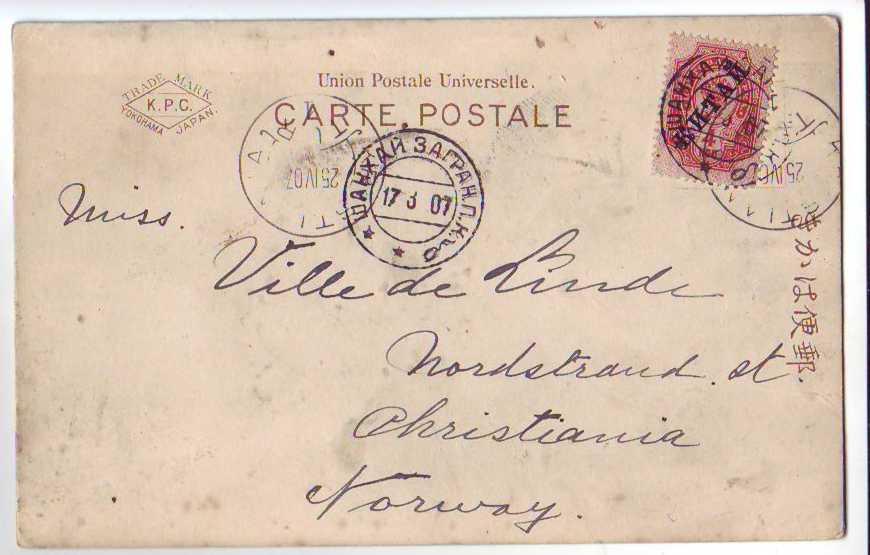 TRADE MARK
K.P.C.
YOKOHAMA JAPAN.
Union Postale Universelle.
CARTE POSTALE
КИТАЙ
ШАНХАЙ
25 IV 07
ШАНХАЙ ЗАГРАН.П.К.
17 3 07
25 IV 0
郵便はかき
Miss.
Ville de Linde
Nordstrand. st.
Christiania
Norway.